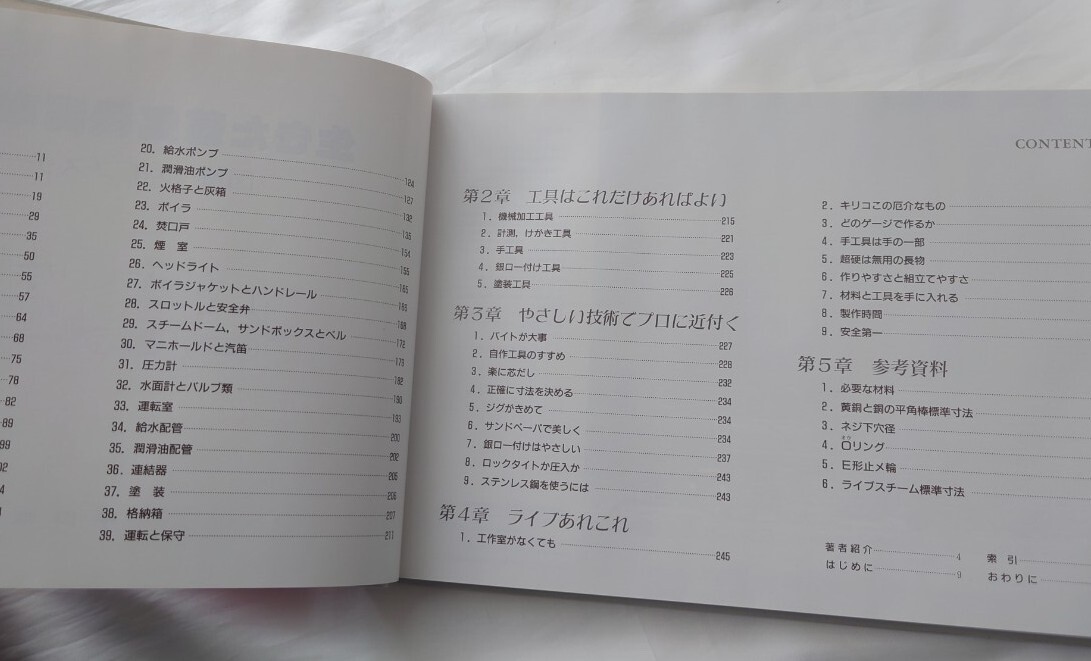 11
11
19
29
35
50
55
57
64
68
75
78
82
89
99
20. 給水ポンプ 124
21. 潤滑油ポンプ 127
22. 火格子と灰箱 132
23. ボイラ 135
24. 焚口戸 154
25. 煙 室 155
26. ヘッドライト 165
27. ボイラジャケットとハンドレール 166
28. スロットルと安全弁 168
29. スチームドーム，サンドボックスとベル 172
30. マニホールドと汽笛 179
31. 圧力計 182
32. 水面計とバルブ類 190
33. 運転室 193
34. 給水配管 200
35. 潤滑油配管 202
36. 連結器 205
37. 塗 装 206
38. 格納箱 207
39. 運転と保守 211
CONTENT
第2章 工具はこれだけあればよい
1. 機械加工工具 215
2. 計測，けがき工具 221
3. 手工具 223
4. 銀ロー付け工具 225
5. 塗装工具 226
第3章 やさしい技術でプロに近付く
1. バイトが大事 227
2. 自作工具のすすめ 228
3. 楽に芯だし 232
4. 正確に寸法を決める 234
5. ジグかきめて 234
6. サンドペーパで美しく 234
7. 銀ロー付けはやさしい 237
8. ロックタイトか圧入か 243
9. ステンレス鋼を使うには 243
第4章 ライブあれこれ
1. 工作室がなくても 245
2. キリコこの厄介なもの
3. どのゲージで作るか
4. 手工具は手の一部
5. 超硬は無用の長物
6. 作りやすさと組立てやすさ
7. 材料と工具を手に入れる
8. 製作時間
9. 安全第一
第5章 参考資料
1. 必要な材料
2. 黄銅と銅の平角棒標準寸法
3. ネジ下穴径
4. Oリング
5. E形止メ輪
6. ライブスチーム標準寸法
著者紹介 4
はじめに 9
索 引
おわりに